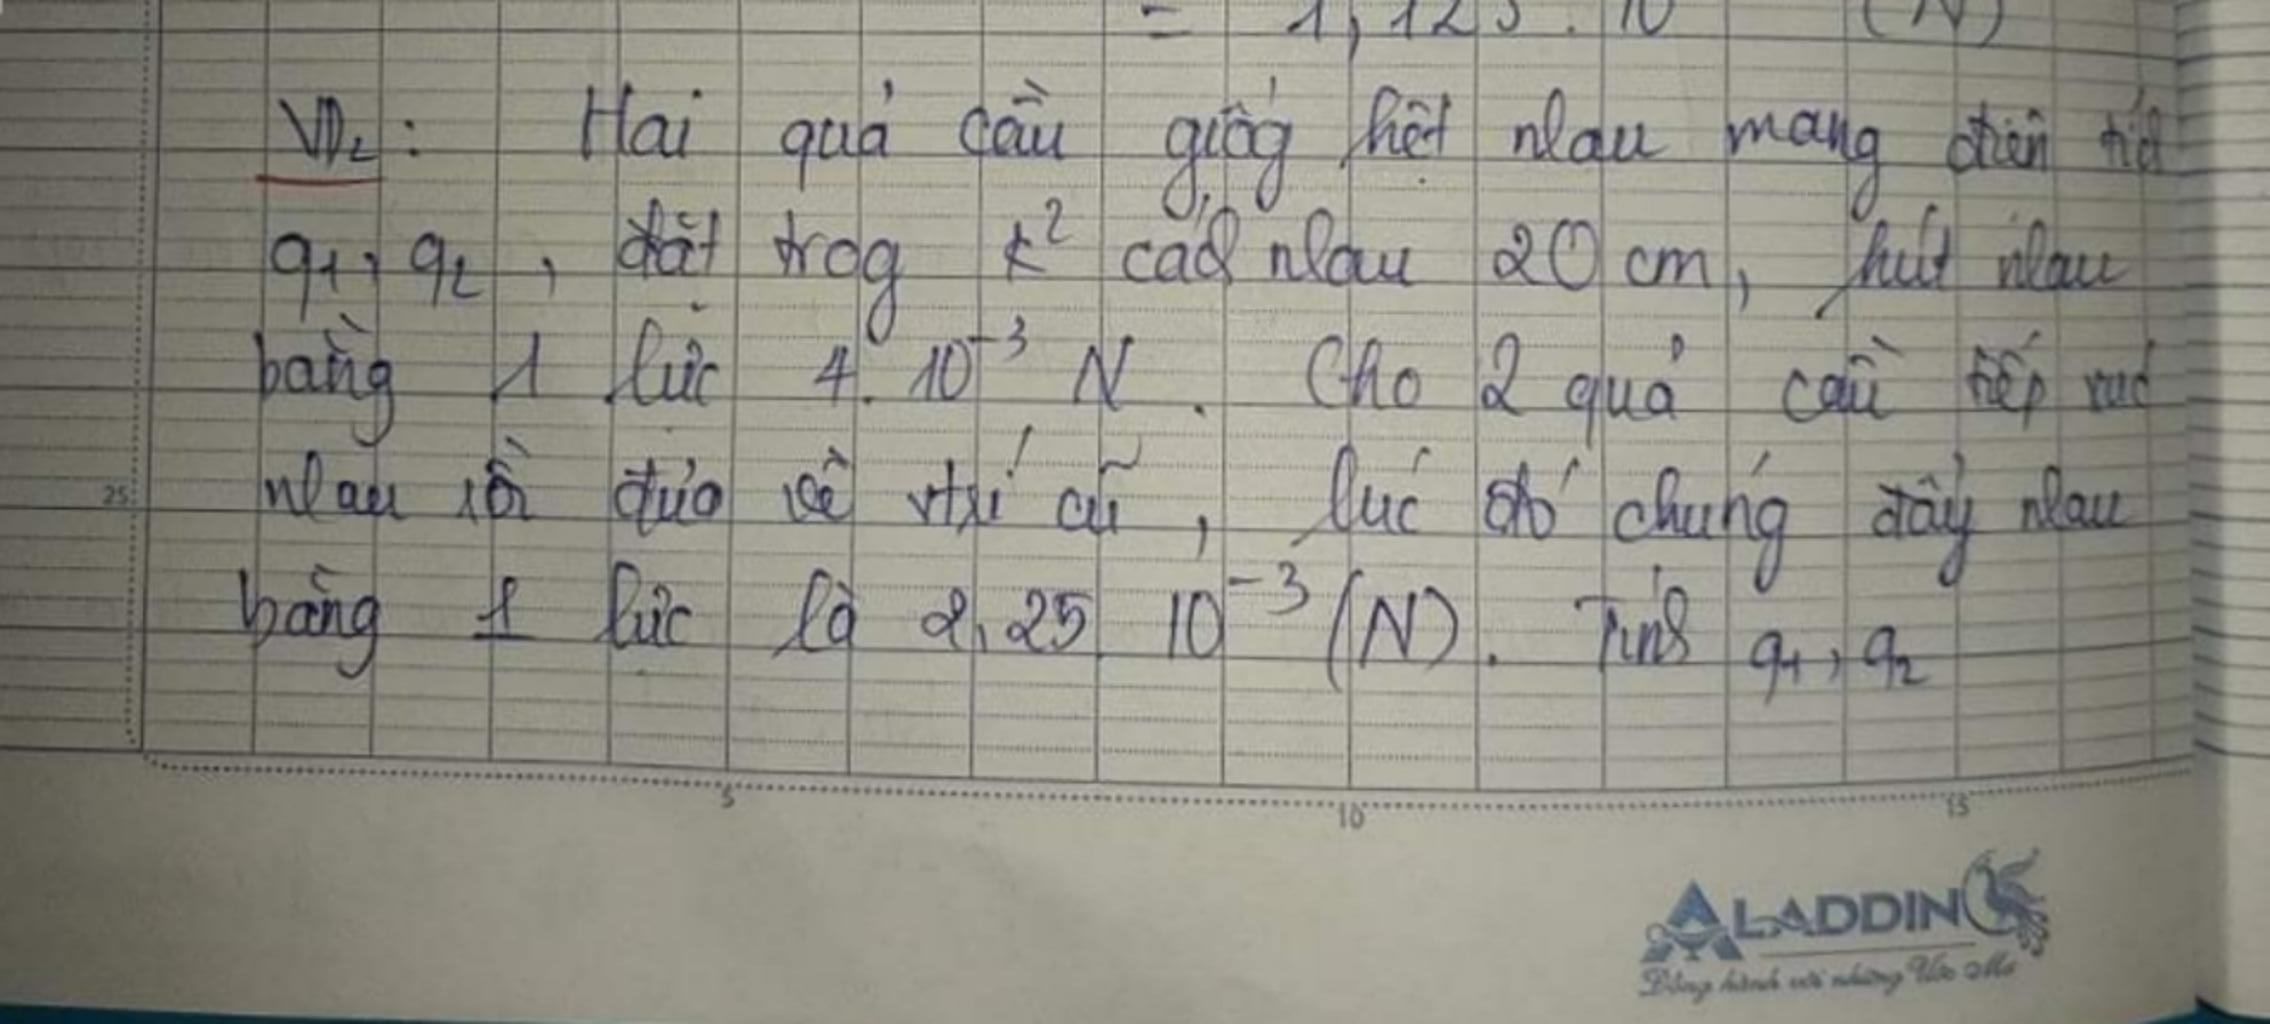 = 1,125.10 (N)
VD2: Hai quả cầu giốg hệt nhau mang điện tích
q1, q2, đặt trog k² cách nhau 20 cm, hút nhau
bằng 1 lực 4.10⁻³ N. Cho 2 quả cầu tiếp xúc
nhau rồi đưa về vtrí cũ, lúc đó chúng đẩy nhau
25
bằng 1 lực là 2,25 10⁻³ (N). Tính q1, q2
5 10 15
ALADDIN
Đồng hành với những Ước Mơ